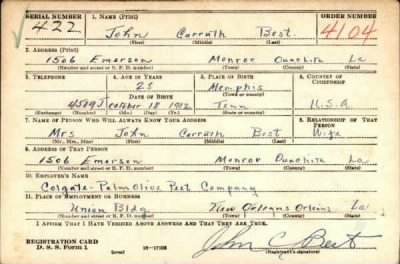 SERIAL NUMBER 1. NAME (Print) ORDER NUMBER
422 John Carruth Best. 4104
(First) (Middle) (Last)
2. ADDRESS (Print)
1506 Emerson Monroe Ouachita La
(Number and street or R. F. D. number) (Town) (County) (State)
3. TELEPHONE 4. AGE IN YEARS 5. PLACE OF BIRTH 6. COUNTRY OF CITIZENSHIP
28 Memphis
DATE OF BIRTH (Town or county)
October 18 1912 Tenn U.S.A
(Exchange) (Number) (Mo.) (Day) (Yr.) (State or country)
7. NAME OF PERSON WHO WILL ALWAYS KNOW YOUR ADDRESS 8. RELATIONSHIP OF THAT PERSON
Mrs John Carruth Best Wife
(Mr., Mrs., Miss) (First) (Middle) (Last)
9. ADDRESS OF THAT PERSON
1506 Emerson Monroe Ouachita La
(Number and street or R. F. D. number) (Town) (County) (State)
10. EMPLOYER'S NAME
Colgate-Palmolive Peet Company
11. PLACE OF EMPLOYMENT OR BUSINESS
Union Bldg New Orleans Orleans La
(Number and street or R. F. D. number) (Town) (County) (State)
I AFFIRM THAT I HAVE VERIFIED ABOVE ANSWERS AND THAT THEY ARE TRUE.
REGISTRATION CARD
D. S. S. Form 1 (over) John C Best
(Registrant's signature)